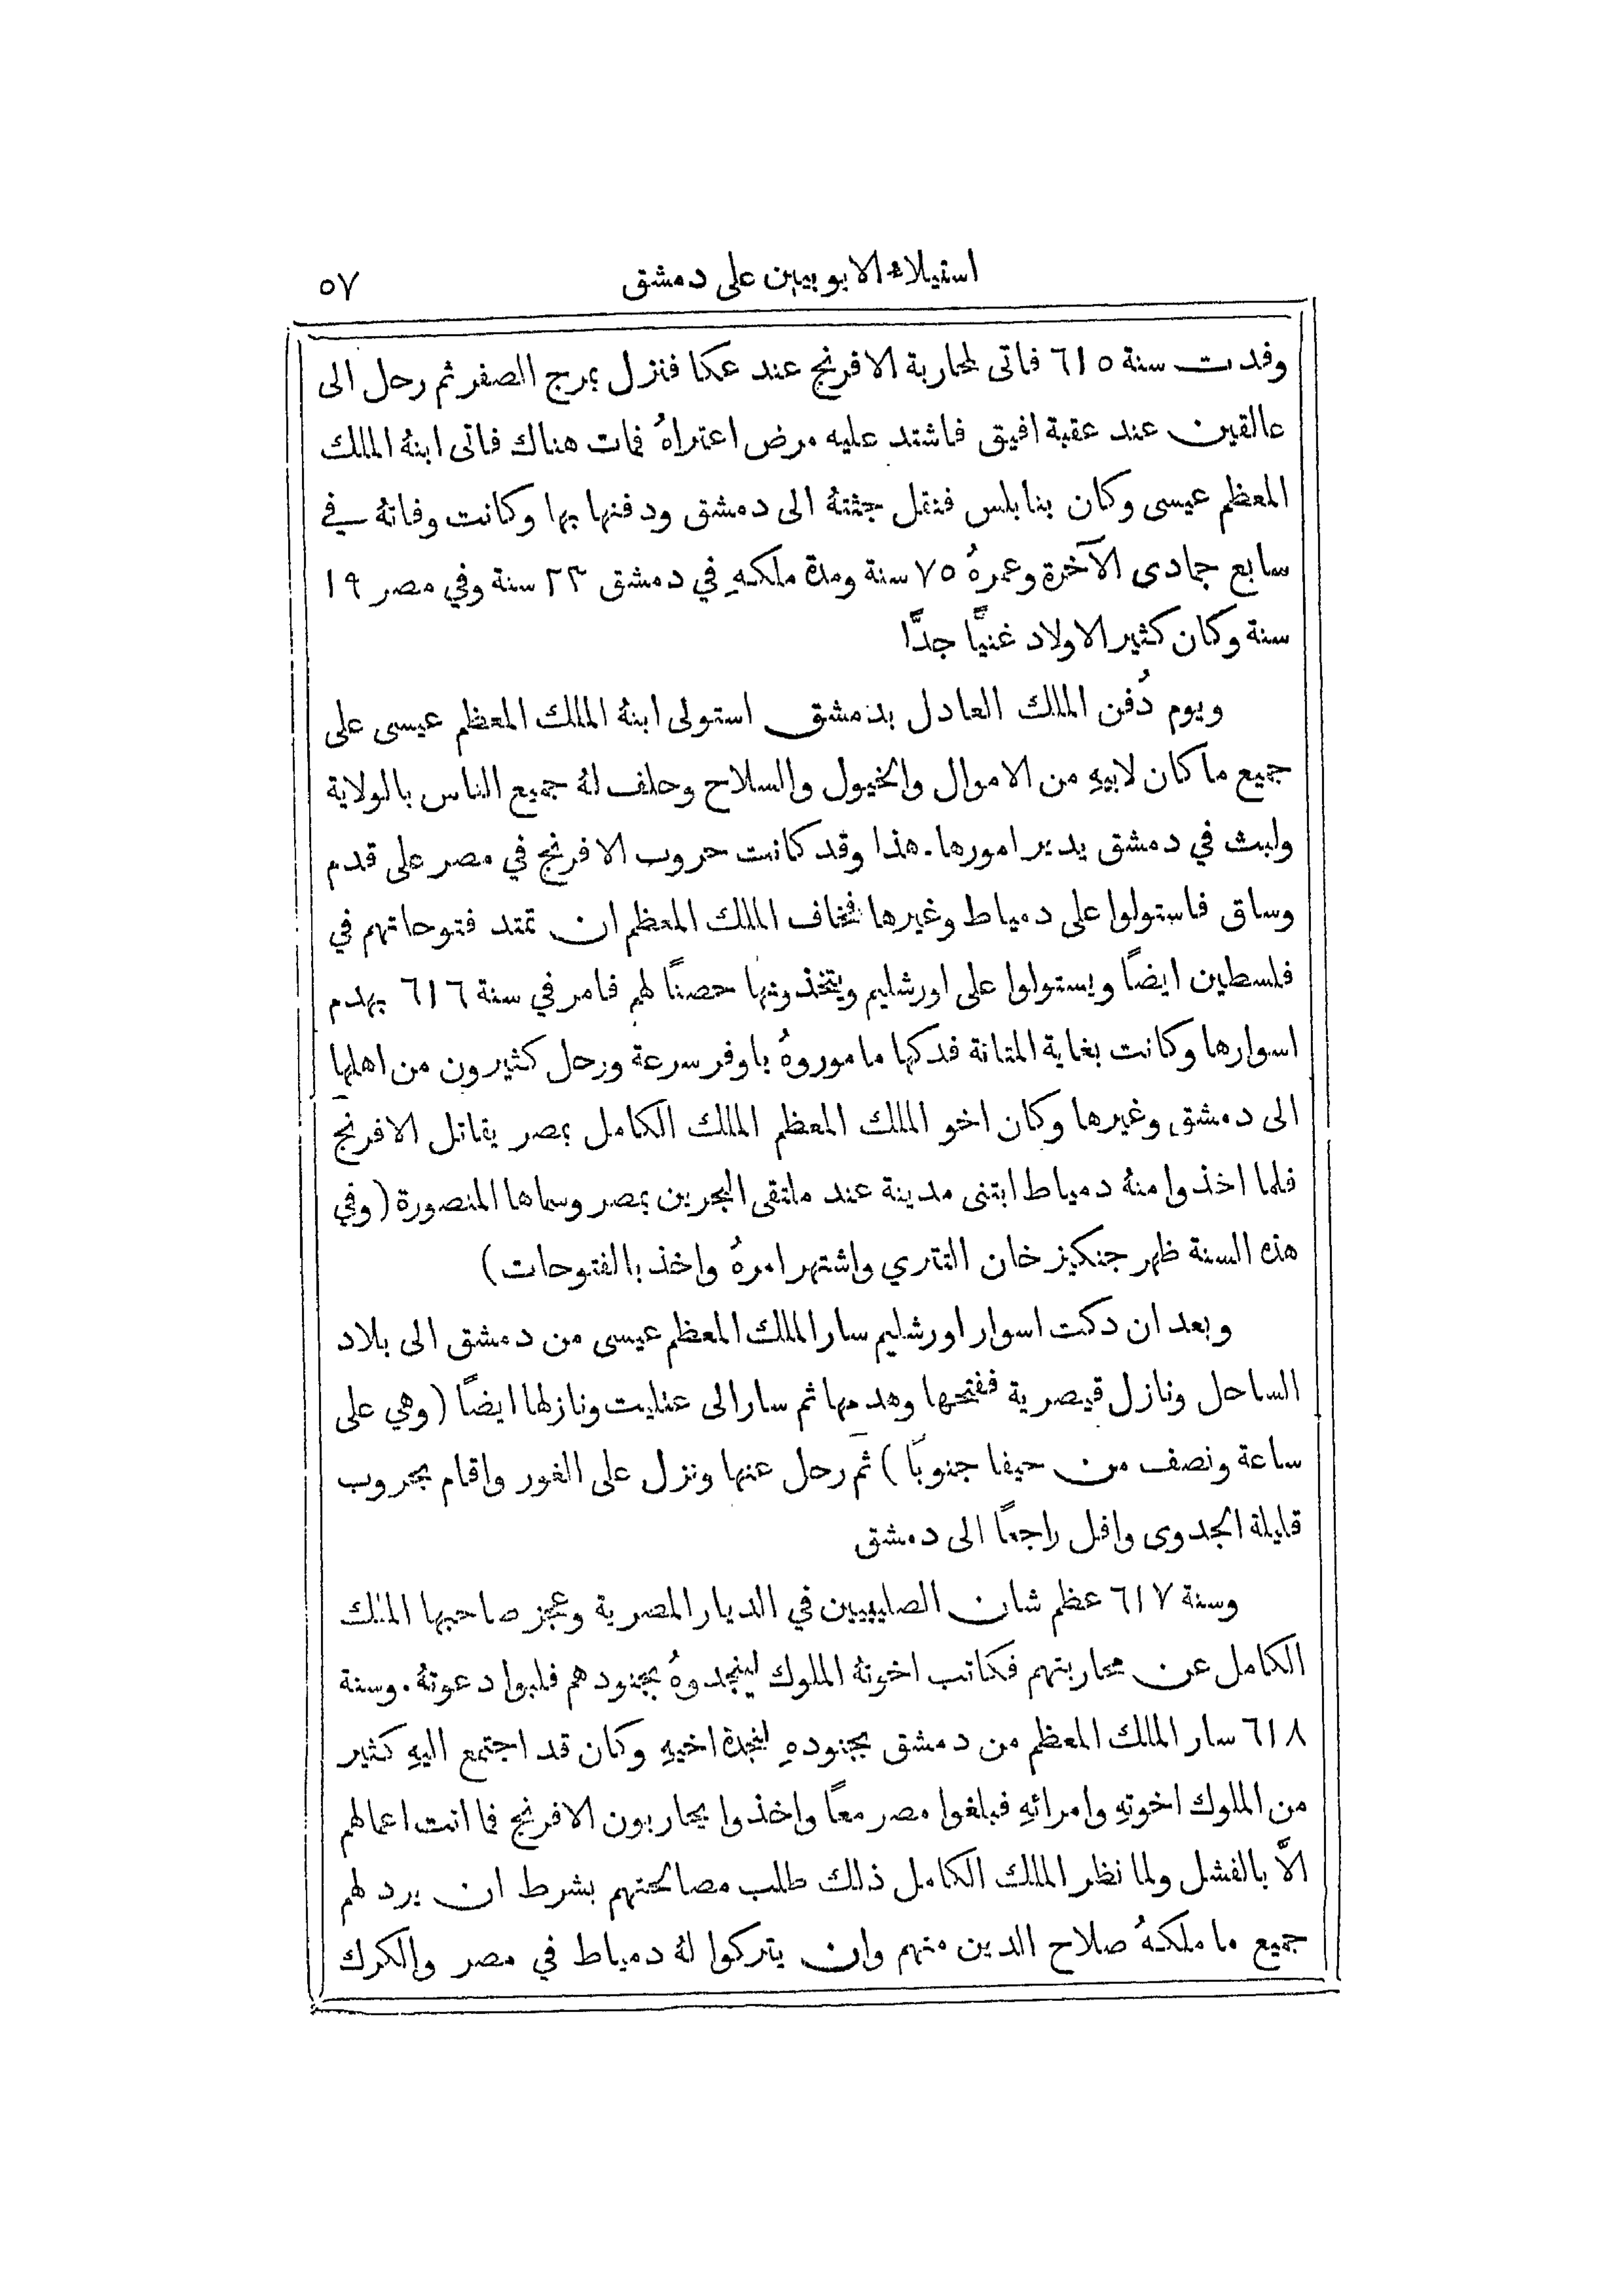 استيلاء الايوبيين على دمشق ٥٧
وفدت سنة ٦١٥ فاتى لمحاربة الافرنج عند عكا فنزل بمرج الصفر ثم رحل الى
عالقين عند عقبة افيق فاشتد عليه مرض اعتراهُ فمات هناك فاتى ابنهُ الملك
المعظم عيسى وكان بنابلس فنقل جثتهُ الى دمشق ودفنها بها وكانت وفاتهُ في
سابع جمادى الآخرة وعمرهُ ٧٥ سنة ومدة ملكهِ في دمشق ٢٣ سنة وفي مصر ١٩
سنة وكان كثير الاولاد غنيًّا جدًّا
ويوم دُفن الملك العادل بدمشق استولى ابنهُ الملك المعظم عيسى على
جميع ما كان لابيهِ من الاموال والخيول والسلاح وحلف لهُ جميع الناس بالولاية
ولبث في دمشق يدير امورها. هذا وقد كانت حروب الافرنج في مصر على قدم
وساق فاستولوا على دمياط وغيرها فخاف الملك المعظم ان تمتد فتوحاتهم في
فلسطين ايضًا ويستولوا على اورشليم ويتخذونها حصنًا لهم فامر في سنة ٦١٦ بهدم
اسوارها وكانت بغاية المتانة فدكها ماموروهُ باوفر سرعة ورحل كثيرون من اهلها
الى دمشق وغيرها وكان اخو الملك المعظم الملك الكامل بمصر يقاتل الافرنج
فلما اخذوا منهُ دمياط ابتنى مدينة عند ملتقى البحرين بمصر وسماها المنصورة (وفي
هذه السنة ظهر جنكيز خان التتري واشتهر امرهُ واخذ بالفتوحات)
وبعد ان دكت اسوار اورشليم سار الملك المعظم عيسى من دمشق الى بلاد
الساحل ونازل قيصرية ففتحها وهدمها ثم سار الى عثليت ونازلها ايضًا (وهي على
ساعة ونصف من حيفا جنوبًا) ثم رحل عنها ونزل على الغور واقام بحروب
قليلة الجدوى وافل راجعًا الى دمشق
وسنة ٦١٧ عظم شان الصليبيين في الديار المصرية وعجز صاحبها الملك
الكامل عن محاربتهم فكاتب اخوتهُ الملوك لينجدوهُ بجنودهم فلبوا دعوتهُ. وسنة
٦١٨ سار الملك المعظم من دمشق بجنودهِ لنجدة اخيهِ وكان قد اجتمع اليهِ كثير
من الملوك اخوتهِ وامرائهِ فبلغوا مصر معًا واخذوا يحاربون الافرنج فما اتت اعمالهم
الاَّ بالفشل ولما نظر الملك الكامل ذلك طلب مصالحتهم بشرط ان يرد لهم
جميع ما ملكهُ صلاح الدين منهم وان يتركوا لهُ دمياط في مصر والكرك